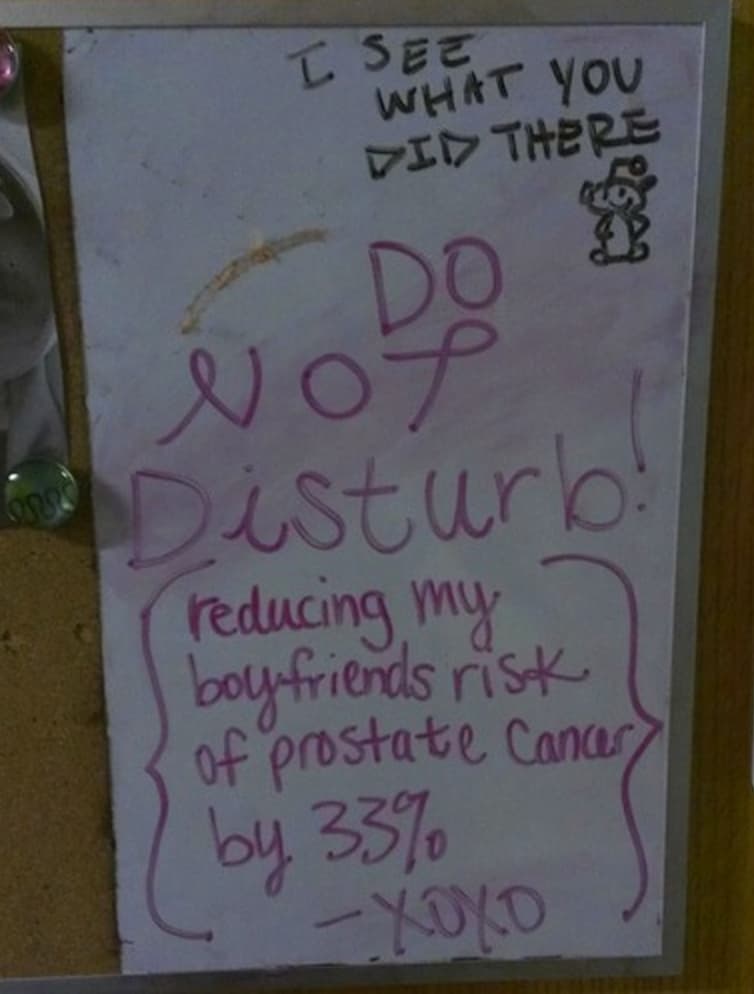 I SEE
WHAT YOU
DID THERE
DO
NOT
Disturb!
reducing my
boyfriends risk
of prostate cancer
by 33%
- XOXO